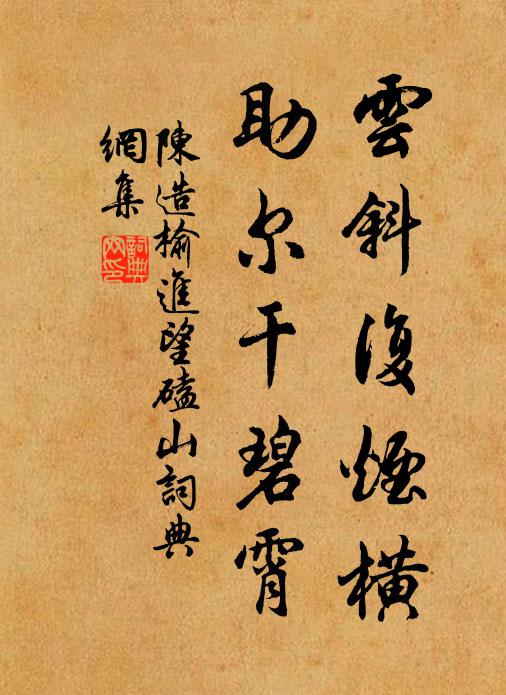 雲斜復煙橫
助尔干碧霄
陳造榆進望磕山詞典
網集
詞典
網印